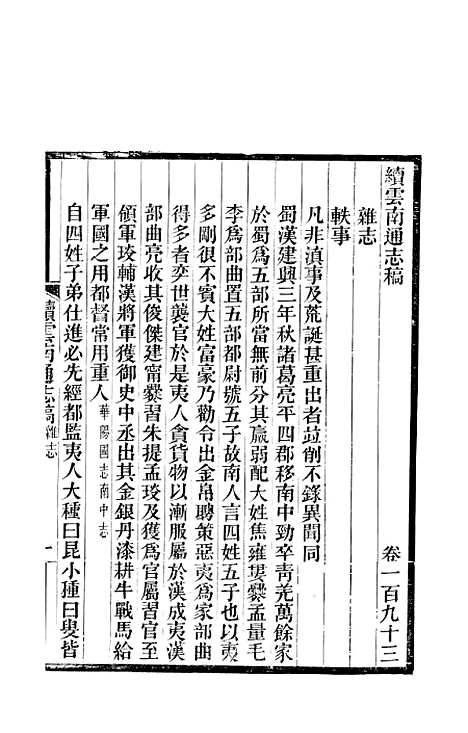 續雲南通志稿
卷一百九十三
雜志
軼事
凡非滇事及荒誕甚重出者竝削不錄異聞同
蜀漢建興三年秋諸葛亮平四郡移南中勁卒靑羌萬餘家
於蜀爲五部所當無前分其羸弱配大姓焦雍婁爨孟量毛
李爲部曲置五部都尉號五子故南人言四姓五子也以夷
多剛很不賓大姓富豪乃勸令出金帛聘策惡夷爲家部曲
得多者奕世襲官於是夷人貪貨物以漸服屬於漢成夷漢
部曲亮收其俊傑建甯爨習朱提孟琰及獲爲官屬習官至
領軍琰輔漢將軍獲御史中丞出其金銀丹漆耕牛戰馬給
軍國之用都督常用重人華陽國志南中志
自四姓子弟仕進必先經都監夷人大種曰昆小種曰叟皆
續雲南通志稿 雜志
一